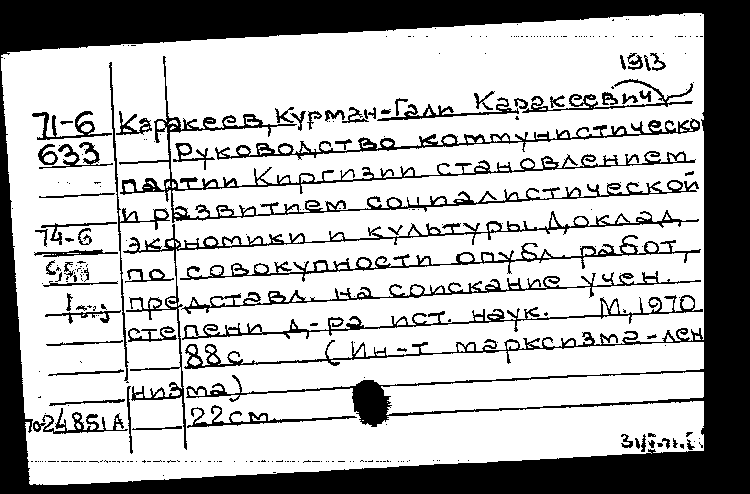 1913
71-6 Каракеев, Курман-Гали Каракеевич
633 Руководство коммунистическо
партии Киргизии становлением
и развитием социалистической
74-6 экономики и культуры. Доклад
по совокупности опубл. работ,
представл. на соискание учен.
степени д-ра ист. наук. М., 1970
88с. (Ин-т марксизма-лен
низма)
70-24851А 22см.